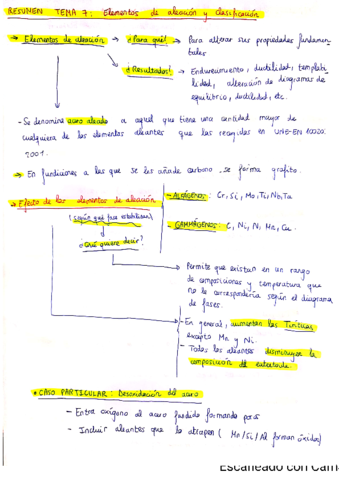 RESUMEN TEMA 7: Elementos de aleación y clasificación
→ Elementos de aleación → ¿Para qué? → Para alterar sus propiedades fundamen-
tales
¿Resultados? → Endurecimiento, ductilidad, templabi-
lidad, alteración de diagramas de
equilibrio, ductilidad, etc.
- Se denomina acero aleado a aquel que tiene una cantidad mayor de
cualquiera de los elementos aleantes que las recogidas en UNE-EN 10020:
2001.
→ En fundiciones a las que se les añade carbono, se forma grafito.
→ Efecto de los elementos de aleación
(según qué fase estabilizan)
- ALFÁGENOS: Cr, Si, Mo, Ti, Nb, Ta
- GAMMÁGENOS: C, Ni, N, Mn, Cu.
¿Qué quiere decir?
→ Permite que existan en un rango
de composiciones y temperatura que
no le correspondería según el diagrama
de fases.
- En general, aumentan las Tcríticas
excepto Mn y Ni.
- Todos los aleantes disminuyen la
composición del eutectoide
* CASO PARTICULAR: Desoxidación del acero
- Entra oxígeno al acero fundido formando poros
- Incluir aleantes que lo atrapen (Mn/Si/Al forman óxidos)
Escaneado con Cam